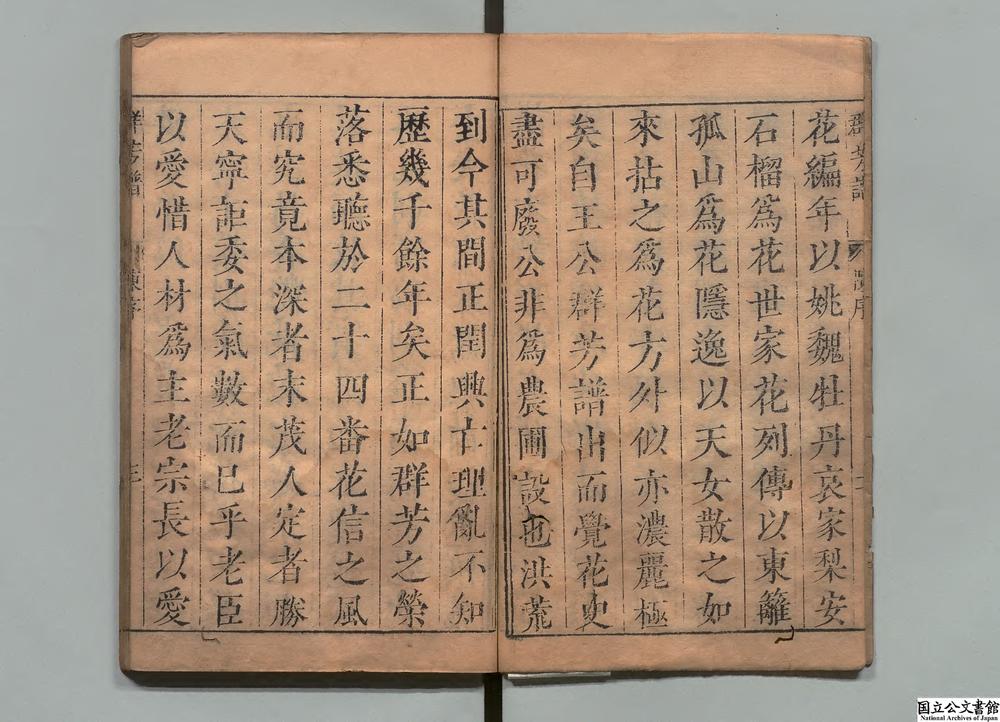 群芳譜 陳序 二
花編年以姚魏牡丹哀家梨安
石榴為花世家花列傳以東籬
孤山為花隱逸以天女散之如
來拈之為花方外似亦濃麗極
矣自王公群芳譜出而覺花史
盡可廢公非為農圃設也洪荒
到今其間正閏興亡理亂不知
歷幾千餘年矣正如群芳之榮
落悉聽於二十四番花信之風
而究竟本深者末茂人定者勝
天寧詎委之氣數而已乎老臣
以愛惜人材為主老宗長以愛
群芳譜 陳序 三
国立公文書館
National Archives of Japan